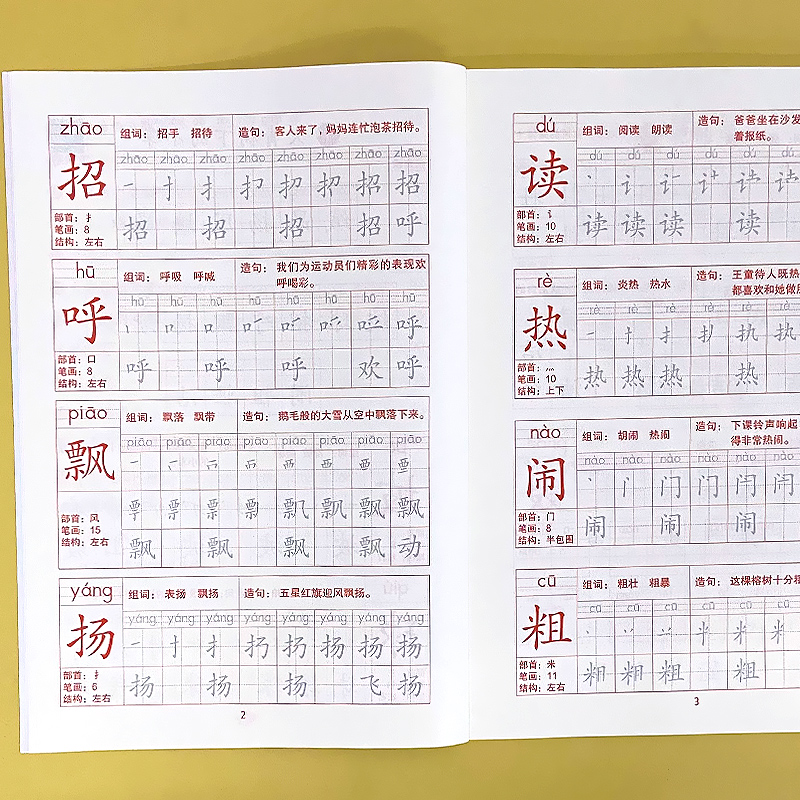 zhāo
组词： 招手 招待
造句： 客人来了，妈妈连忙泡茶招待。
招
zhāo zhāo zhāo zhāo zhāo zhāo zhāo zhāo
招 招
部首：扌
笔画：8
结构：左右
招 招 招 招 呼
hū
组词： 呼吸 呼喊
造句： 我们为运动员们精彩的表现欢
呼喝彩。
呼
hū hū hū hū hū hū hū hū
呼
部首：口
笔画：8
结构：左右
呼 呼 呼 欢 呼
piāo
组词： 飘落 飘带
造句： 鹅毛般的大雪从空中飘落下来。
飘
piāo piāo piāo piāo piāo piāo piāo piāo
部首：风
笔画：15
结构：左右
飘 飘 飘 飘 动
yáng
组词： 表扬 飘扬
造句： 五星红旗迎风飘扬。
扬
yáng yáng yáng yáng yáng yáng yáng yáng
扬 扬 扬
部首：扌
笔画：6
结构：左右
扬 扬 扬 飞 扬
2
dú
组词： 阅读 朗读
造句： 爸爸坐在沙发
着报纸。
读
dú dú dú dú dú dú
部首：讠
笔画：10
结构：左右
读 读 读 读
rè
组词： 炎热 热水
造句： 王童待人既热
都喜欢和她做
热
rè rè rè rè rè rè
部首：灬
笔画：10
结构：上下
热 热 热 热
nào
组词： 胡闹 热闹
造句： 下课铃声响起
得非常热闹。
闹
nào nào nào nào nào nào
部首：门
笔画：8
结构：半包围
闹 闹 闹
cū
组词： 粗壮 粗暴
造句： 这棵榕树十分粗
粗
cū cū cū cū cū cū
部首：米
笔画：11
结构：左右
粗 粗
3